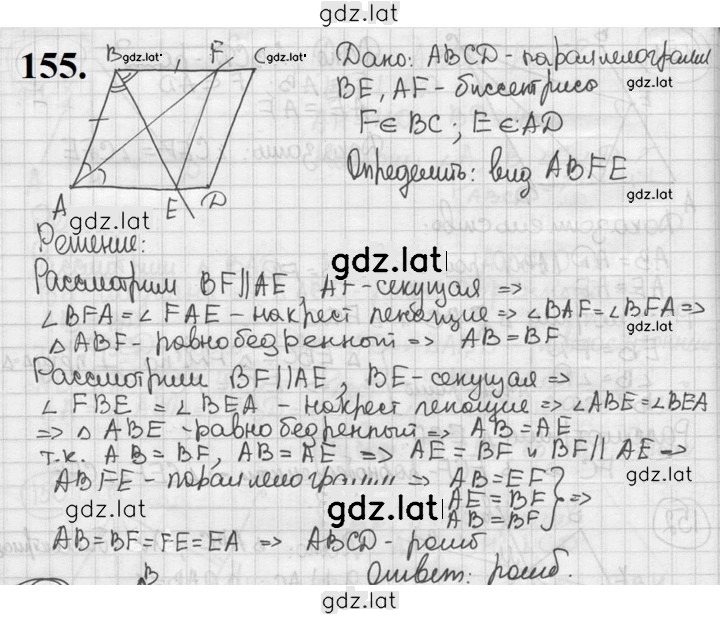 gdz.lat
155.
B gdz.lat F C gdz.lat
Дано: ABCD - параллелограмм
gdz.lat
BE, AF - биссектрисы
F ∈ BC ; E ∈ AD
gdz.lat
Определить: вид ABFE
gdz.lat
A E D
gdz.lat
Решение:
gdz.lat
Рассмотрим BF || AE, AF - секущая =>
∠BFA = ∠FAE - накрест лежащие => ∠BAF = ∠BFA =>
gdz.lat
△ABF - равнобедренный => AB = BF
Рассмотрим BF || AE, BE - секущая =>
gdz.lat
∠FBE = ∠BEA - накрест лежащие => ∠ABE = ∠BEA
=> △ABE - равнобедренный => AB = AE
т.к. AB = BF, AB = AE => AE = BF и BF || AE =>
ABFE - параллелограмм => AB = EF
AE = BF
AB = BF } =>
gdz.lat
gdz.lat
AB = BF = FE = EA => ABCD - ромб
B
Ответ: ромб.
gdz.lat